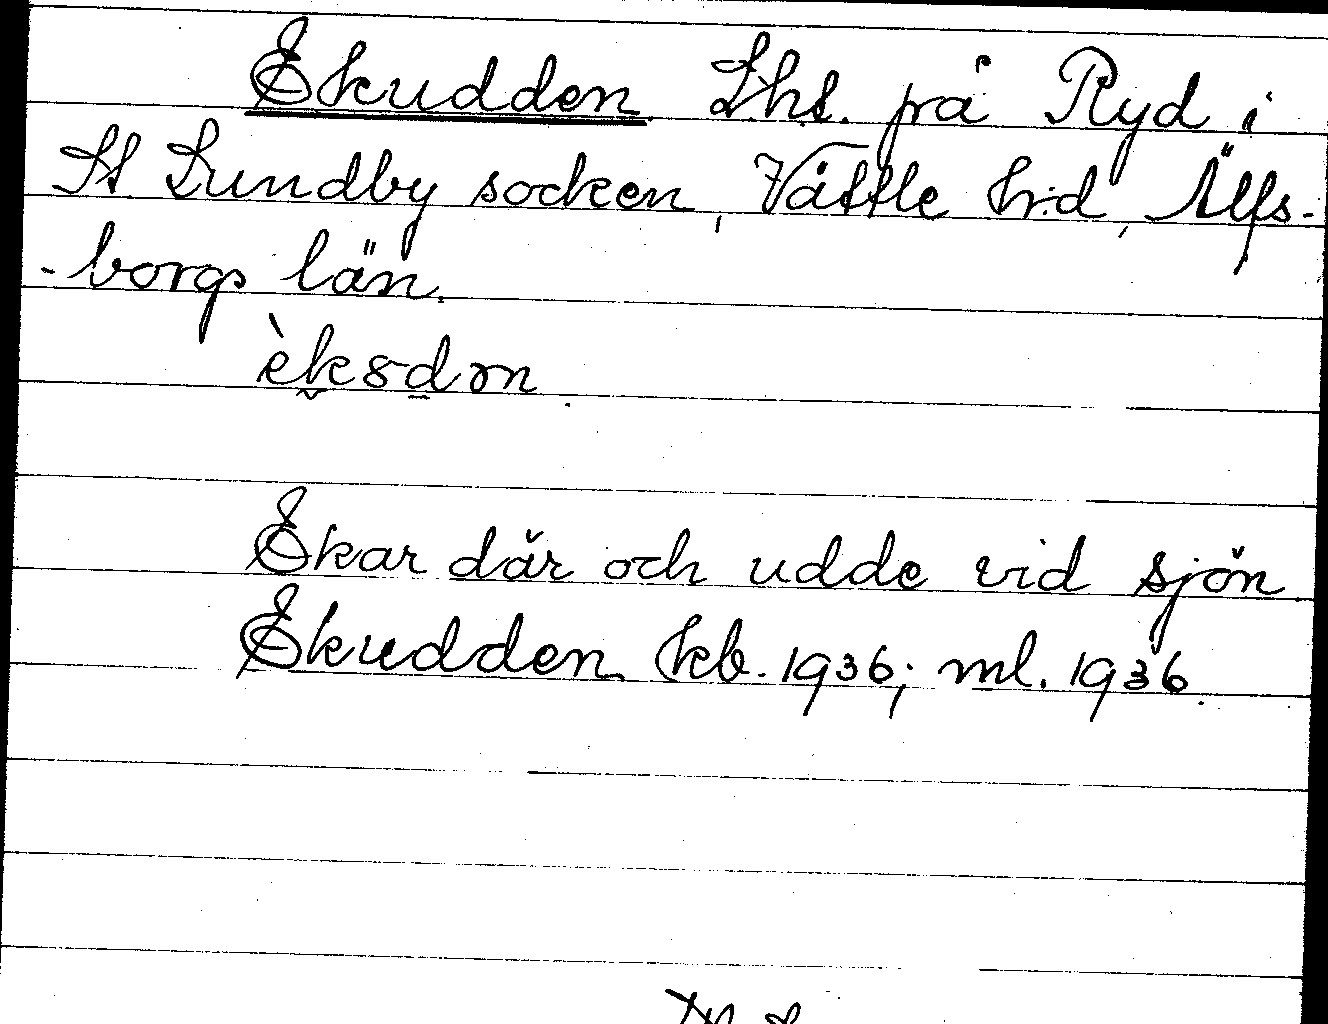 Ekudden Lht. på Ryd i
St Lundby socken, Vättle hrd, Älfs-
-borgs län.
Ekar där och udde vid sjön
Ekudden kb. 1936; ml. 1936.